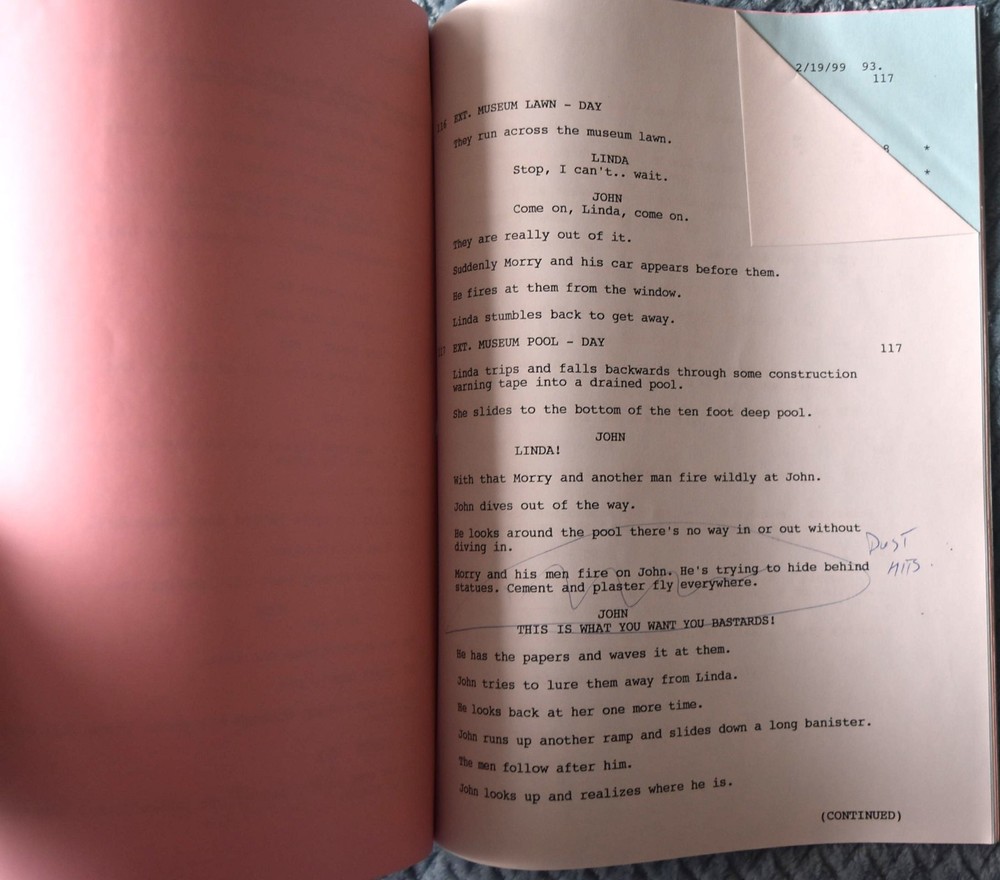 2/19/99 93.
117
8 *
*
116 EXT. MUSEUM LAWN - DAY
They run across the museum lawn.
LINDA
Stop, I can't.. wait.
JOHN
Come on, Linda, come on.
They are really out of it.
Suddenly Morry and his car appears before them.
He fires at them from the window.
Linda stumbles back to get away.
117 EXT. MUSEUM POOL - DAY 117
Linda trips and falls backwards through some construction
warning tape into a drained pool.
She slides to the bottom of the ten foot deep pool.
JOHN
LINDA!
With that Morry and another man fire wildly at John.
John dives out of the way.
He looks around the pool there's no way in or out without
diving in.
DUST
HITS.
Morry and his men fire on John. He's trying to hide behind
statues. Cement and plaster fly everywhere.
JOHN
THIS IS WHAT YOU WANT YOU BASTARDS!
He has the papers and waves it at them.
John tries to lure them away from Linda.
He looks back at her one more time.
John runs up another ramp and slides down a long banister.
The men follow after him.
John looks up and realizes where he is.
(CONTINUED)